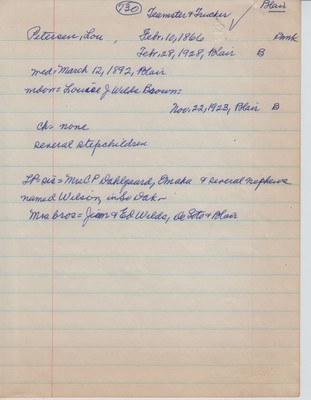 730 Teamster & Trucker Blair
Petersen, Lou, Feb. 10, 1866 Dmk
Feb. 28, 1928, Blair B
md= March 12, 1892, Blair
mdon= Louise J Wilds Brown=
Nov. 22, 1923, Blair B
ch= none
several stepchildren
LP= sis= Mrs C P Dahlgaard, Omaha & several nephews
named Wilson, in So Dak-
Mrs bros= Jim & Ed Wilds, De Soto & Blair